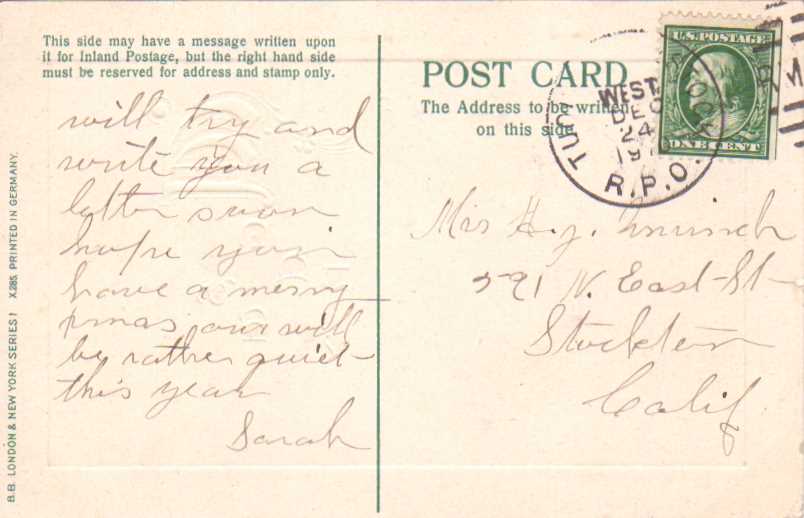 This side may have a message written upon
it for Inland Postage, but the right hand side
must be reserved for address and stamp only.
will try and
write you a
letter soon
hope you
have a merry
xmas, our will
be rather quiet
this year
Sarah
B.B. LONDON & NEW YORK SERIES X.285. PRINTED IN GERMANY.
POST CARD
The Address to be written
on this side
U.S. POSTAGE
ONE CENT
WEST
DEC
24
R.P.O.
H.
N. East-St
Stockton
Calif